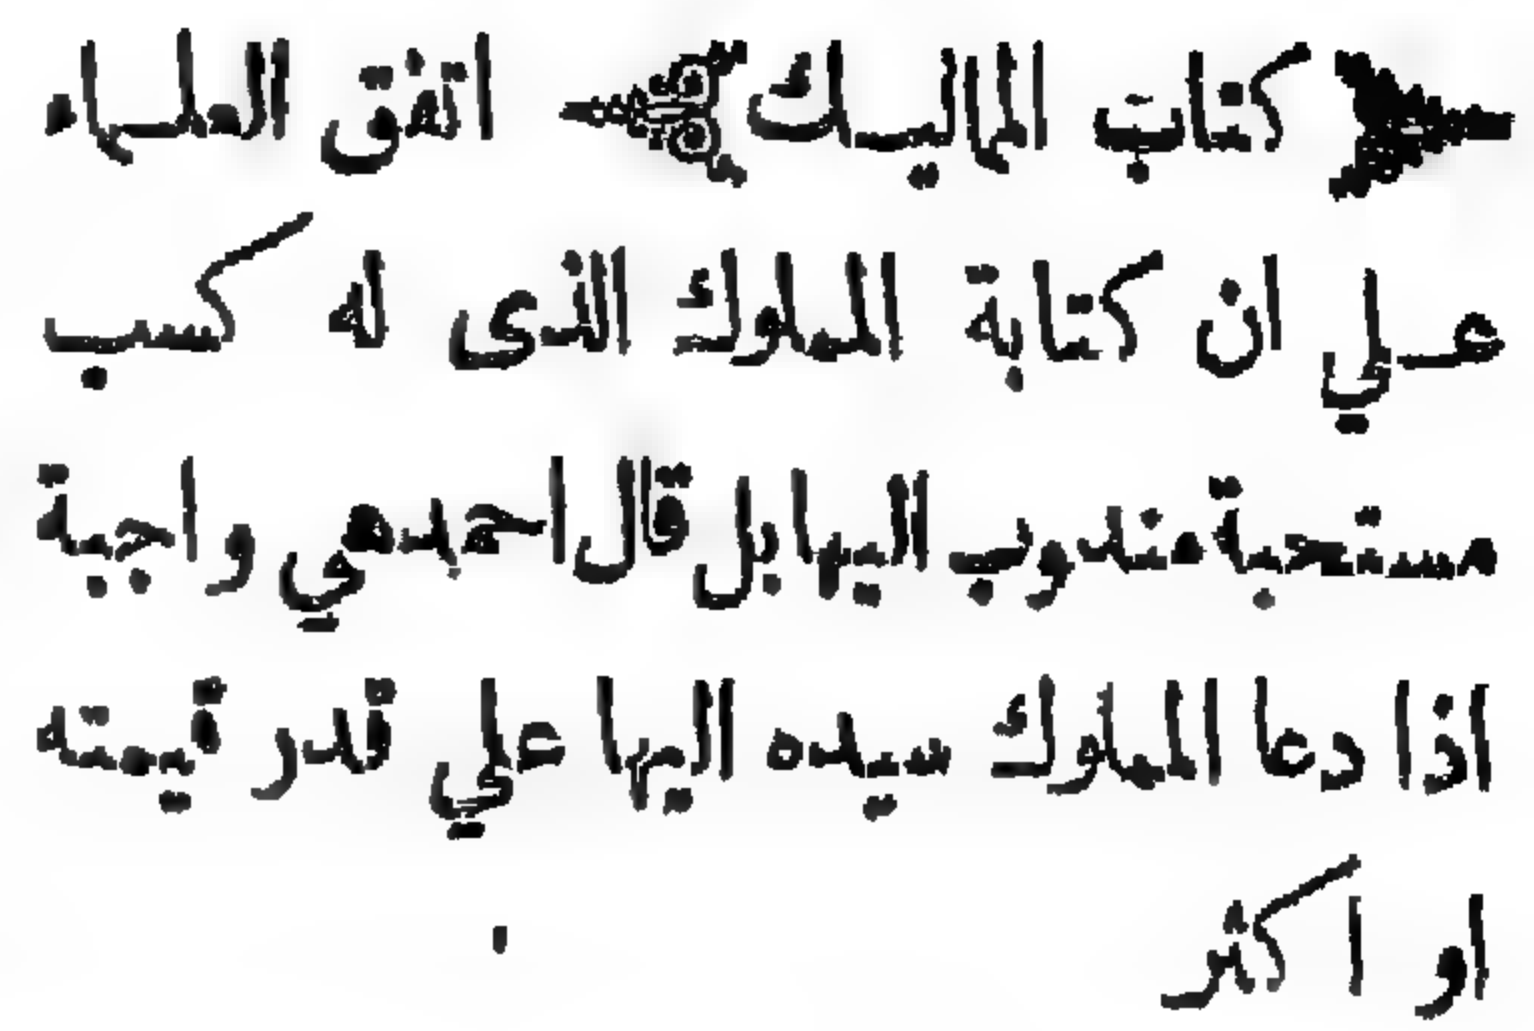 كتاب المماليك اتفق العلماء
علي ان كتابة المملوك الذى له كسب
مستحبة مندوب اليها بل قال احمد هي واجبة
اذا دعا المملوك سيده اليها علي قدر قيمته
او اكثر